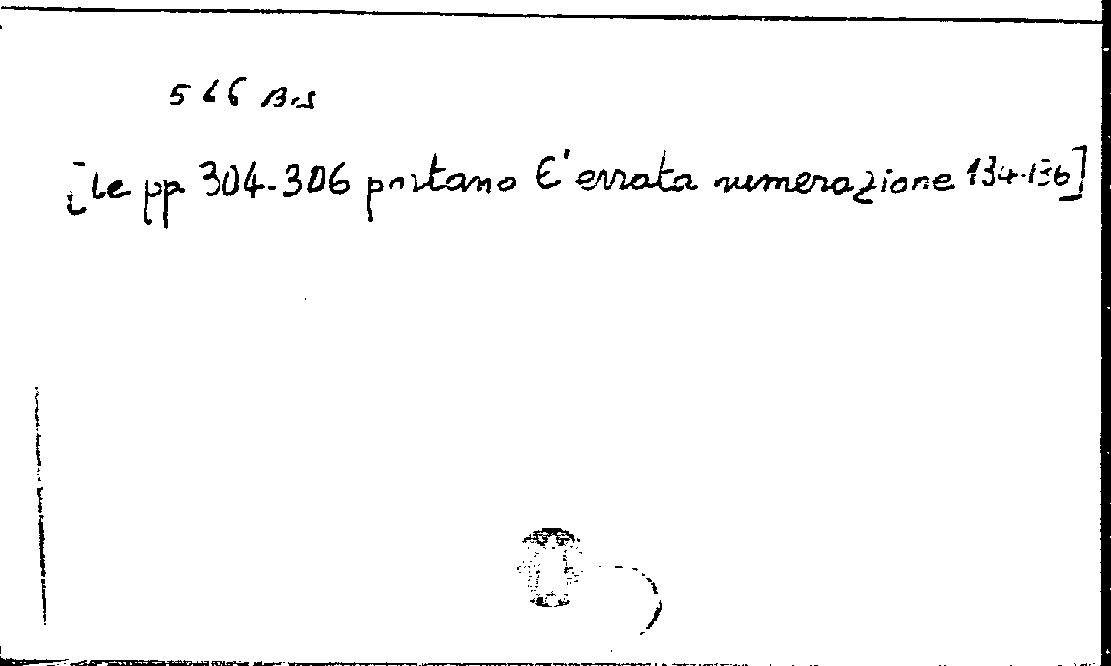 566 Bis
[Le pp 304-306 portano l'errata numerazione 134-136]